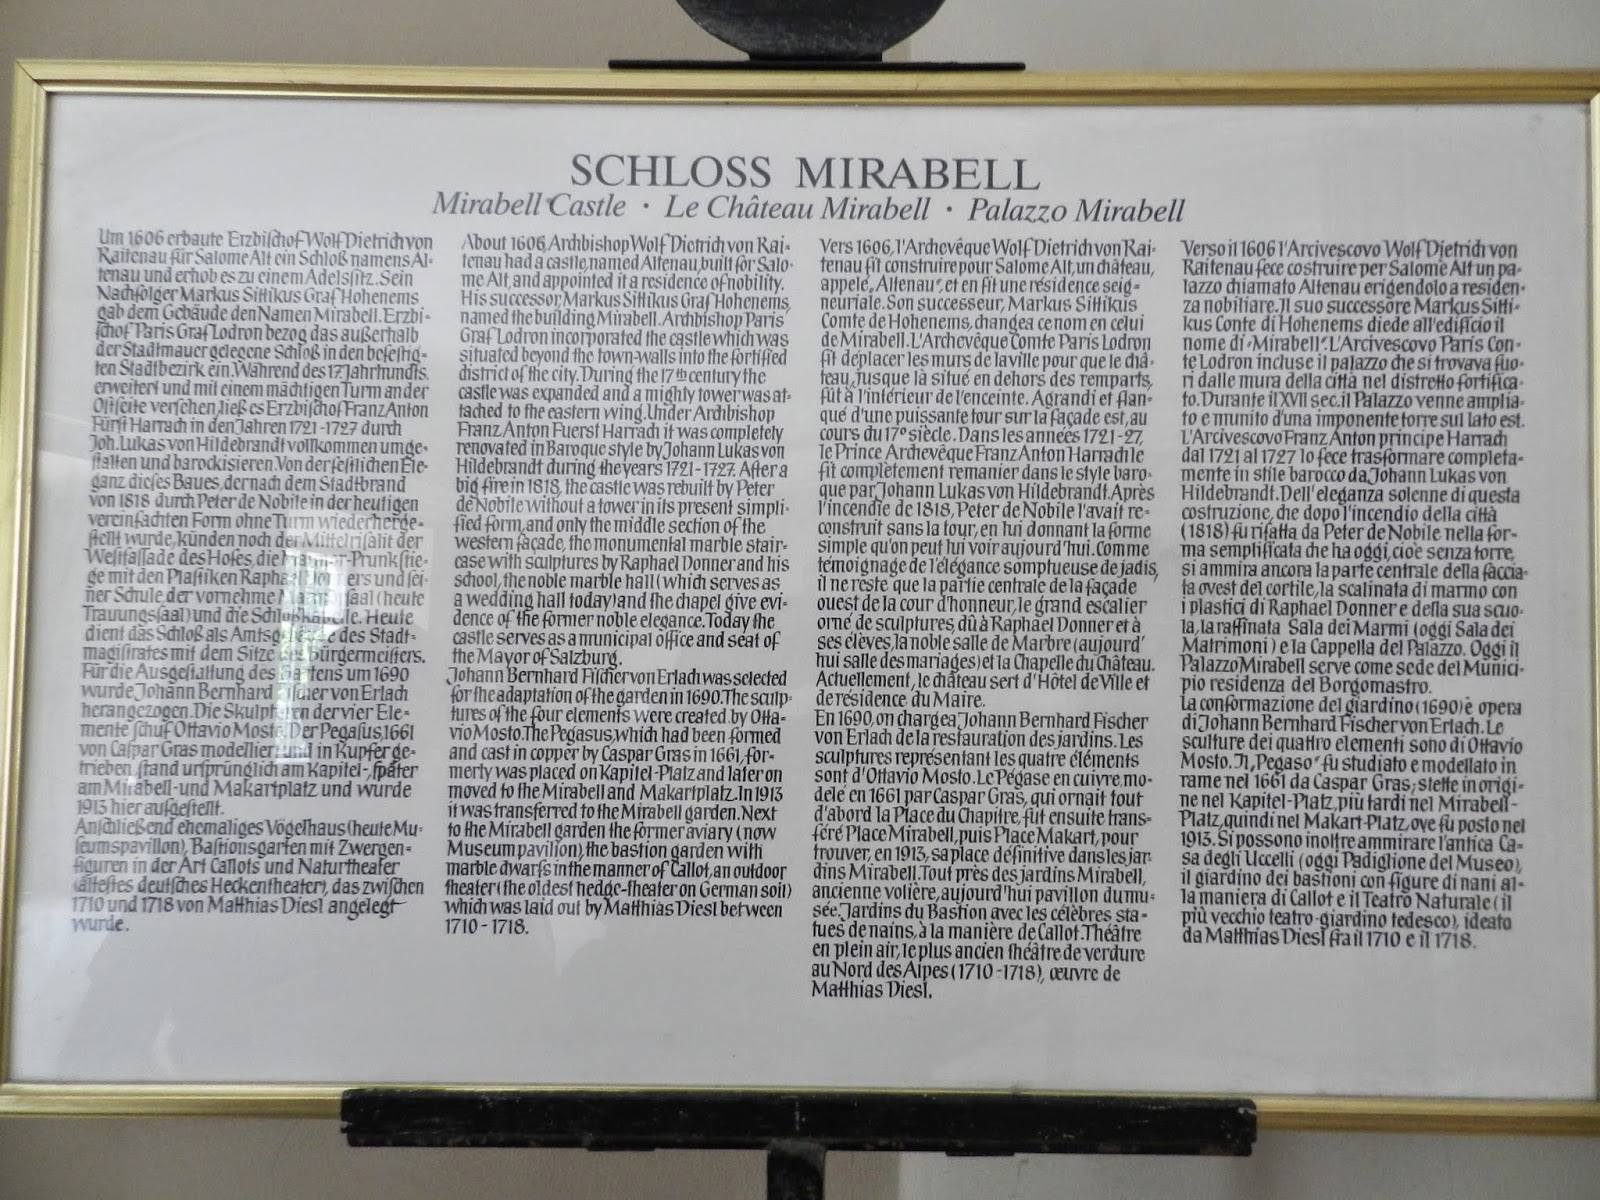 SCHLOSS MIRABELL
Mirabell Castle · Le Château Mirabell · Palazzo Mirabell
Um 1606 erbaute Erzbischof Wolf Dietrich von
Raitenau für Salome Alt ein Schloß namens Al-
tenau und erhob es zu einem Adelssitz. Sein
Nachfolger Markus Sittikus Graf Hohenems
gab dem Gebäude den Namen Mirabell. Erzbi-
schof Paris Graf Lodron bezog das außerhalb
der Stadtmauer gelegene Schloß in den befestig-
ten Stadtbezirk ein. Während des 17. Jahrhunds.
erweitert und mit einem mächtigen Turm an der
Ostseite versehen, ließ es Erzbischof Franz Anton
Fürst Harrach in den Jahren 1721-1727 durch
Joh. Lukas von Hildebrandt vollkommen umge-
stalten und barockisieren. Von der festlichen Ele-
ganz dieses Baues, der nach dem Stadtbrand
von 1818 durch Peter de Nobile in der heutigen
vereinfachten Form ohne Turm wiederherge-
stellt wurde, künden noch der Mittelrisalit der
Westfassade des Hofes, die Marmor-Prunkstie-
ge mit den Plastiken Raphael Donners und sei-
ner Schule, der vornehme Marmorsaal (heute
Trauungssaal) und die Schloßkapelle. Heute
dient das Schloß als Amtsgebäude des Stadt-
magistrates mit dem Sitze des Bürgermeisters.
Für die Ausgestaltung des Gartens um 1690
wurde Johann Bernhard Fischer von Erlach
herangezogen. Die Skulpturen der vier Ele-
mente schuf Ottavio Mosto. Der Pegasus, 1661
von Caspar Gras modelliert und in Kupfer ge-
trieben, stand ursprünglich am Kapitel-, später
am Mirabell- und Makartplatz und wurde
1913 hier aufgestellt.
Anschließend ehemaliges Vögelhaus (heute Mu-
seumspavillon), Bastionsgarten mit Zwergen-
figuren in der Art Callots und Naturtheater
(ältestes deutsches Heckentheater), das zwischen
1710 und 1718 von Matthias Diesl angelegt
wurde.
About 1606, Archbishop Wolf Dietrich von Rai-
tenau had a castle, named Altenau, built for Salo-
me Alt, and appointed it a residence of nobility.
His successor, Markus Sittikus Graf Hohenems,
named the building Mirabell. Archbishop Paris
Graf Lodron incorporated the castle which was
situated beyond the town-walls into the fortified
district of the city. During the 17th century the
castle was expanded and a mighty tower was at-
tached to the eastern wing. Under Archbishop
Franz Anton Fuerst Harrach it was completely
renovated in Baroque style by Johann Lukas von
Hildebrandt during the years 1721-1727. After a
big fire in 1818, the castle was rebuilt by Peter
de Nobile without a tower in its present simpli-
fied form, and only the middle section of the
western façade, the monumental marble stair-
case with sculptures by Raphael Donner and his
school, the noble marble hall (which serves as
a wedding hall today) and the chapel give evi-
dence of the former noble elegance. Today the
castle serves as a municipal office and seat of
the Mayor of Salzburg.
Johann Bernhard Fischer von Erlach was selected
for the adaptation of the garden in 1690. The sculp-
tures of the four elements were created by Otta-
vio Mosto. The Pegasus, which had been formed
and cast in copper by Caspar Gras in 1661, for-
merly was placed on Kapitel-Platz and later on
moved to the Mirabell and Makartplatz. In 1913
it was transferred to the Mirabell garden. Next
to the Mirabell garden the former aviary (now
Museum pavilion), the bastion garden with
marble dwarfs in the manner of Callot, an outdoor
theater (the oldest hedge-theater on German soil)
which was laid out by Matthias Diesl between
1710 - 1718.
Vers 1606, l'Archevêque Wolf Dietrich von Rai-
tenau fit construire pour Salome Alt, un château,
appelé „Altenau", et en fit une résidence seig-
neuriale. Son successeur, Markus Sittikus
Comte de Hohenems, changea ce nom en celui
de Mirabell. L'Archevêque Comte Paris Lodron
fit déplacer les murs de la ville pour que le châ-
teau, jusque là situé en dehors des remparts,
fût à l'intérieur de l'enceinte. Agrandi et flan-
qué d'une puissante tour sur la façade est, au
cours du 17e siècle. Dans les années 1721-27,
le Prince Archevêque Franz Anton Harrach le
fit complètement remanier dans le style baro-
que par Johann Lukas von Hildebrandt. Après
l'incendie de 1818, Peter de Nobile l'avait re-
construit sans la tour, en lui donnant la forme
simple qu'on peut lui voir aujourd'hui. Comme
témoignage de l'élégance somptueuse de jadis,
il ne reste que la partie centrale de la façade
ouest de la cour d'honneur, le grand escalier
orné de sculptures, dû à Raphael Donner et à
ses élèves, la noble salle de Marbre (aujourd'
hui salle des mariages) et la Chapelle du Château.
Actuellement, le château sert d'Hôtel de Ville et
de résidence du Maire.
En 1690, on chargea Johann Bernhard Fischer
von Erlach de la restauration des jardins. Les
sculptures représentant les quatre éléments
sont d'Ottavio Mosto. Le Pégase en cuivre, mo-
delé en 1661 par Caspar Gras, qui ornait tout
d'abord la Place du Chapitre, fut ensuite trans-
féré Place Mirabell, puis Place Makart, pour
trouver, en 1913, sa place définitive dans les jar-
dins Mirabell. Tout près des jardins Mirabell,
ancienne volière, aujourd'hui pavillon du mu-
sée. Jardins du Bastion avec les célèbres sta-
tues de nains, à la manière de Callot. Théâtre
en plein air, le plus ancien théâtre de verdure
au Nord des Alpes (1710-1718), œuvre de
Matthias Diesl.
Verso il 1606 l'Arcivescovo Wolf Dietrich von
Raitenau fece costruire per Salome Alt un pa-
lazzo chiamato Altenau erigendolo a residen-
za nobiliare. Il suo successore Markus Sitti-
kus Conte di Hohenems diede all'edificio il
nome di „Mirabell". L'Arcivescovo Paris Con-
te Lodron incluse il palazzo che si trovava fuo-
ri dalle mura della città nel distretto fortifica-
to. Durante il XVII sec. il Palazzo venne amplia-
to e munito d'una imponente torre sul lato est.
L'Arcivescovo Franz Anton principe Harrach
dal 1721 al 1727 lo fece trasformare completa-
mente in stile barocco da Johann Lukas von
Hildebrandt. Dell'eleganza solenne di questa
costruzione, che dopo l'incendio della città
(1818) fu rifatta da Peter de Nobile nella for-
ma semplificata che ha oggi, cioè senza torre,
si ammira ancora la parte centrale della faccia-
ta ovest del cortile, la scalinata di marmo con
i plastici di Raphael Donner e della sua scuo-
la, la raffinata Sala dei Marmi (oggi Sala dei
Matrimoni) e la Cappella del Palazzo. Oggi il
Palazzo Mirabell serve come sede del Munici-
pio residenza del Borgomastro.
La conformazione del giardino (1690) è opera
di Johann Bernhard Fischer von Erlach. Le
sculture dei quattro elementi sono di Ottavio
Mosto. Il „Pegaso" fu studiato e modellato in
rame nel 1661 da Caspar Gras; stette in origi-
ne nel Kapitel-Platz, più tardi nel Mirabell-
Platz, quindi nel Makart-Platz, ove fu posto nel
1913. Si possono inoltre ammirare l'antica Ca-
sa degli Uccelli (oggi Padiglione del Museo),
il giardino dei bastioni con figure di nani al-
la maniera di Callot e il Teatro Naturale (il
più vecchio teatro-giardino tedesco), ideato
da Matthias Diesl fra il 1710 e il 1718.